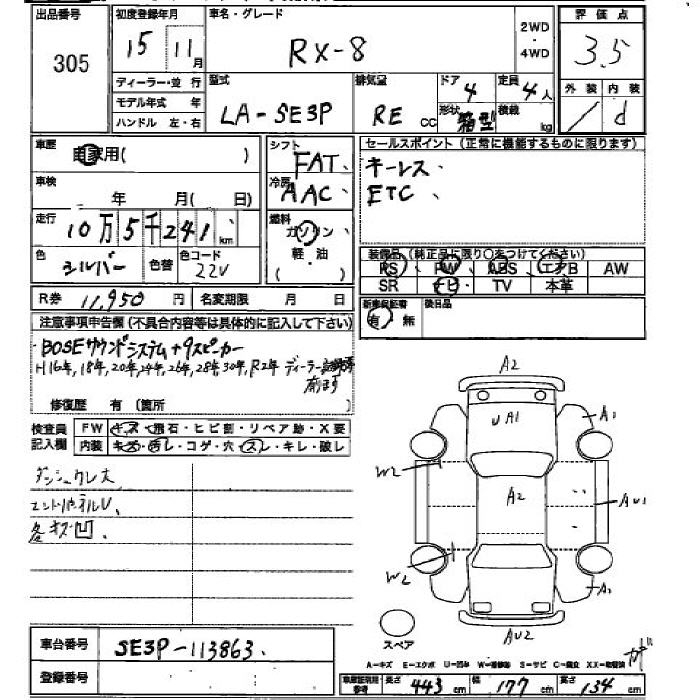 出品番号
305
初度登録年月
15 11月
車名・グレード
RX-8
2WD
・
4WD
評価点
3.5
ディーラー・並行
モデル年式 年
ハンドル 左・右
型式
LA-SE3P
排気量
RE CC
ドア
4
形状
箱型
定員
4人
積載
kg
外装 内装
/ d
車歴
自家用( )
車検
年 月( 日)
走行
10万5千241km
色
シルバー
色替
色コード
22V
シフト
FAT、
冷房
AAC、
燃料
ガソリン
・
軽・油
セールスポイント(正常に機能するものに限ります)
キーレス、
ETC、
装備品(純正品に限り○をつけてください)
PS PW ABS エアB AW
SR ナビ TV 本革
R券 11,950 円 名変期限 月 日
新車保証書
有 無
後日品
注意事項申告欄(不具合内容等は具体的に記入して下さい)
BOSEサウンドシステム+9スピーカー
H16年,18年,20年,24年,26年,28年,30年,R2年 ディーラー記録簿
有ります
修復歴 有(箇所
検査員
記入欄
FW キズ・飛石・ヒビ割・リペア跡・X要
内装 キズ・汚レ・コゲ・穴・スレ・キレ・破レ
ダッシュウレ大
エンドパネルU、
各キズ凹、
A2
UA1
A1
W2
A2
AU1
W2
A2
AU2
スペア
車台番号
SE3P-113863.
登録番号
A=キズ E=エクボ U=凹み W=補修跡 S=サビ C=腐食 XX=取替済
車庫証明用
参考
長さ 443 cm 幅 177 cm 高さ 134 cm